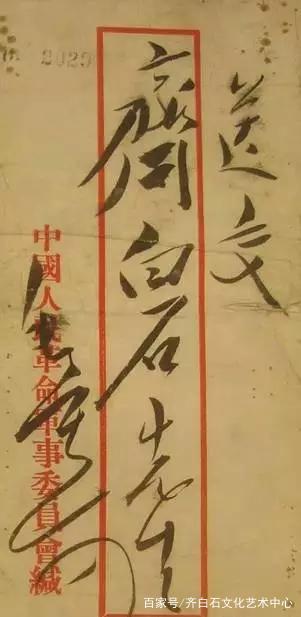 2029
送交
齊白石先生
中國人民革命軍事委員會緘
百家号/齐白石文化艺术中心